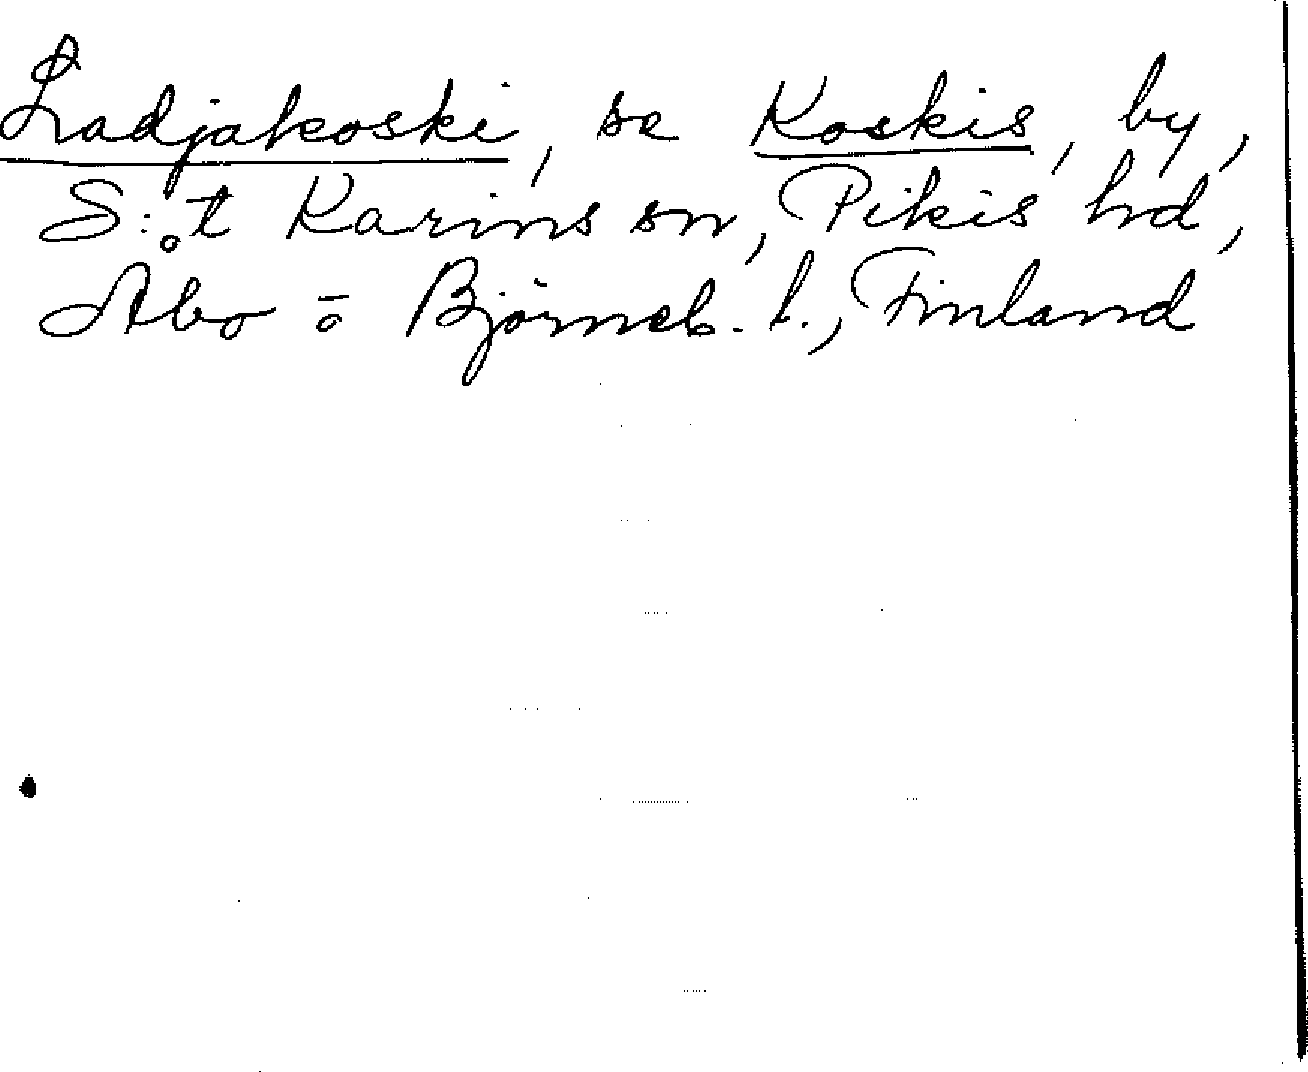 Ladjakoski, se Koskis, by,
S:t Karins sn, Pikis hd,
Åbo o Björneb. l., Finland